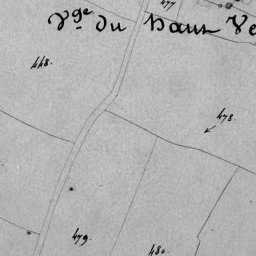 477
V.ge du haut Ve
448.
478.
479.
480